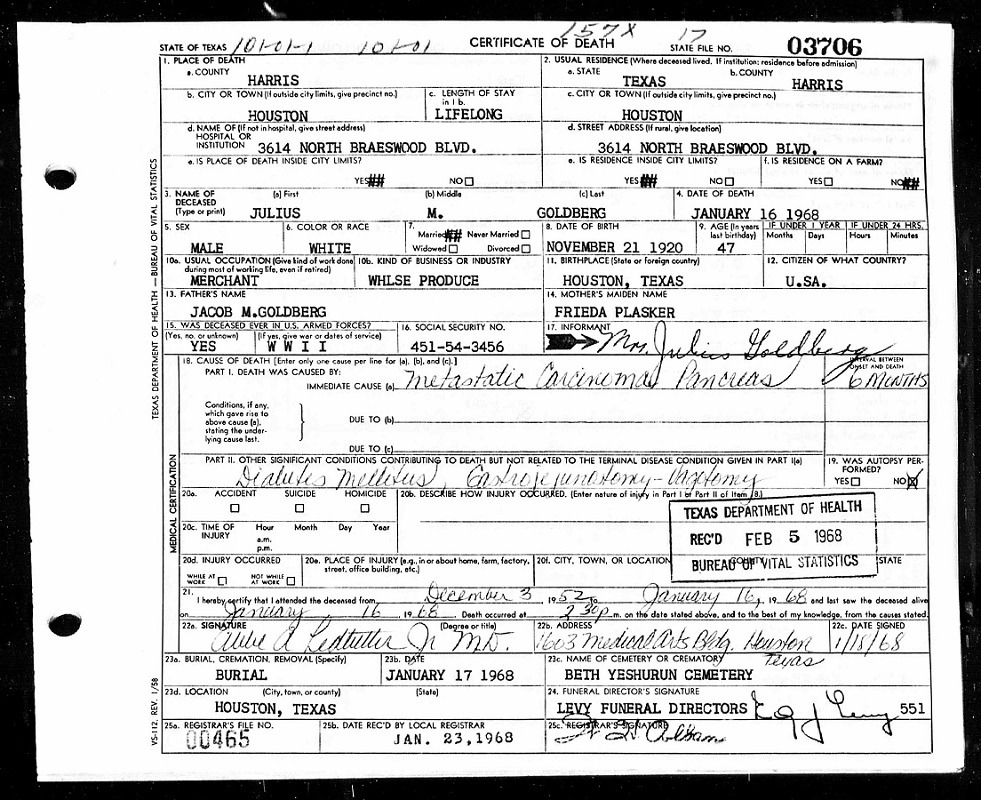 157X 17
STATE OF TEXAS 101-01-1 101-01 CERTIFICATE OF DEATH STATE FILE NO. 03706
1. PLACE OF DEATH
a. COUNTY HARRIS
2. USUAL RESIDENCE (Where deceased lived. If institution: residence before admission)
a. STATE TEXAS b. COUNTY HARRIS
b. CITY OR TOWN (If outside city limits, give precinct no.) HOUSTON
c. LENGTH OF STAY in 1 b. LIFELONG
c. CITY OR TOWN (If outside city limits, give precinct no.) HOUSTON
d. NAME OF (If not in hospital, give street address)
HOSPITAL OR
INSTITUTION 3614 NORTH BRAESWOOD BLVD.
d. STREET ADDRESS (If rural, give location)
3614 NORTH BRAESWOOD BLVD.
e. IS PLACE OF DEATH INSIDE CITY LIMITS?
YES ## NO
e. IS RESIDENCE INSIDE CITY LIMITS?
YES ## NO
f. IS RESIDENCE ON A FARM?
YES NO ##
3. NAME OF DECEASED (Type or print)
(a) First JULIUS
(b) Middle M.
(c) Last GOLDBERG
4. DATE OF DEATH
JANUARY 16 1968
5. SEX
MALE
6. COLOR OR RACE
WHITE
7.
Married ## Never Married
Widowed Divorced
8. DATE OF BIRTH
NOVEMBER 21 1920
9. AGE (In years last birthday)
47
IF UNDER 1 YEAR
Months Days
IF UNDER 24 HRS.
Hours Minutes
10a. USUAL OCCUPATION (Give kind of work done during most of working life, even if retired)
MERCHANT
10b. KIND OF BUSINESS OR INDUSTRY
WHLSE PRODUCE
11. BIRTHPLACE (State or foreign country)
HOUSTON, TEXAS
12. CITIZEN OF WHAT COUNTRY?
U.SA.
13. FATHER'S NAME
JACOB M.GOLDBERG
14. MOTHER'S MAIDEN NAME
FRIEDA PLASKER
15. WAS DECEASED EVER IN U.S. ARMED FORCES?
(Yes, no, or unknown) (If yes, give war or dates of service)
YES W W I I
16. SOCIAL SECURITY NO.
451-54-3456
17. INFORMANT
Mrs. Julius Goldberg
18. CAUSE OF DEATH [Enter only one cause per line for (a), (b), and (c).]
PART I. DEATH WAS CAUSED BY:
IMMEDIATE CAUSE (a) Metastatic Carcinoma Pancreas
INTERVAL BETWEEN ONSET AND DEATH
6 MONTHS
Conditions, if any, which gave rise to above cause (a), stating the underlying cause last.
DUE TO (b)
DUE TO (c)
PART II. OTHER SIGNIFICANT CONDITIONS CONTRIBUTING TO DEATH BUT NOT RELATED TO THE TERMINAL DISEASE CONDITION GIVEN IN PART I(a)
Diabetes Mellitus, Gastrojejunotomy - Vagotomy
19. WAS AUTOPSY PERFORMED?
YES NO X
20a. ACCIDENT SUICIDE HOMICIDE
20b. DESCRIBE HOW INJURY OCCURRED. (Enter nature of injury in Part I or Part II of Item 18.)
20c. TIME OF INJURY
Hour Month Day Year
a.m.
p.m.
TEXAS DEPARTMENT OF HEALTH
REC'D FEB 5 1968
BUREAU OF VITAL STATISTICS
20d. INJURY OCCURRED
WHILE AT WORK NOT WHILE AT WORK
20e. PLACE OF INJURY (e.g., in or about home, farm, factory, street, office building, etc.)
20f. CITY, TOWN, OR LOCATION COUNTY STATE
21. I hereby certify that I attended the deceased from December 3 1952 to January 16, 1968 and last saw the deceased alive
on January 16 1968 Death occurred at 2 30 p m. on the date stated above, and to the best of my knowledge, from the causes stated.
22a. SIGNATURE (Degree or title)
A Ledbetter Jr M.D.
22b. ADDRESS
1603 Medical Arts Bldg. Houston Texas
22c. DATE SIGNED
1/18/68
23a. BURIAL, CREMATION, REMOVAL (Specify)
BURIAL
23b. DATE
JANUARY 17 1968
23c. NAME OF CEMETERY OR CREMATORY
BETH YESHURUN CEMETERY
23d. LOCATION (City, town, or county) (State)
HOUSTON, TEXAS
24. FUNERAL DIRECTOR'S SIGNATURE
LEVY FUNERAL DIRECTORS Levy 551
25a. REGISTRAR'S FILE NO.
00465
25b. DATE REC'D BY LOCAL REGISTRAR
JAN. 23,1968
25c. REGISTRAR'S SIGNATURE
TEXAS DEPARTMENT OF HEALTH — BUREAU OF VITAL STATISTICS
MEDICAL CERTIFICATION
VS-112. REV. 1/58